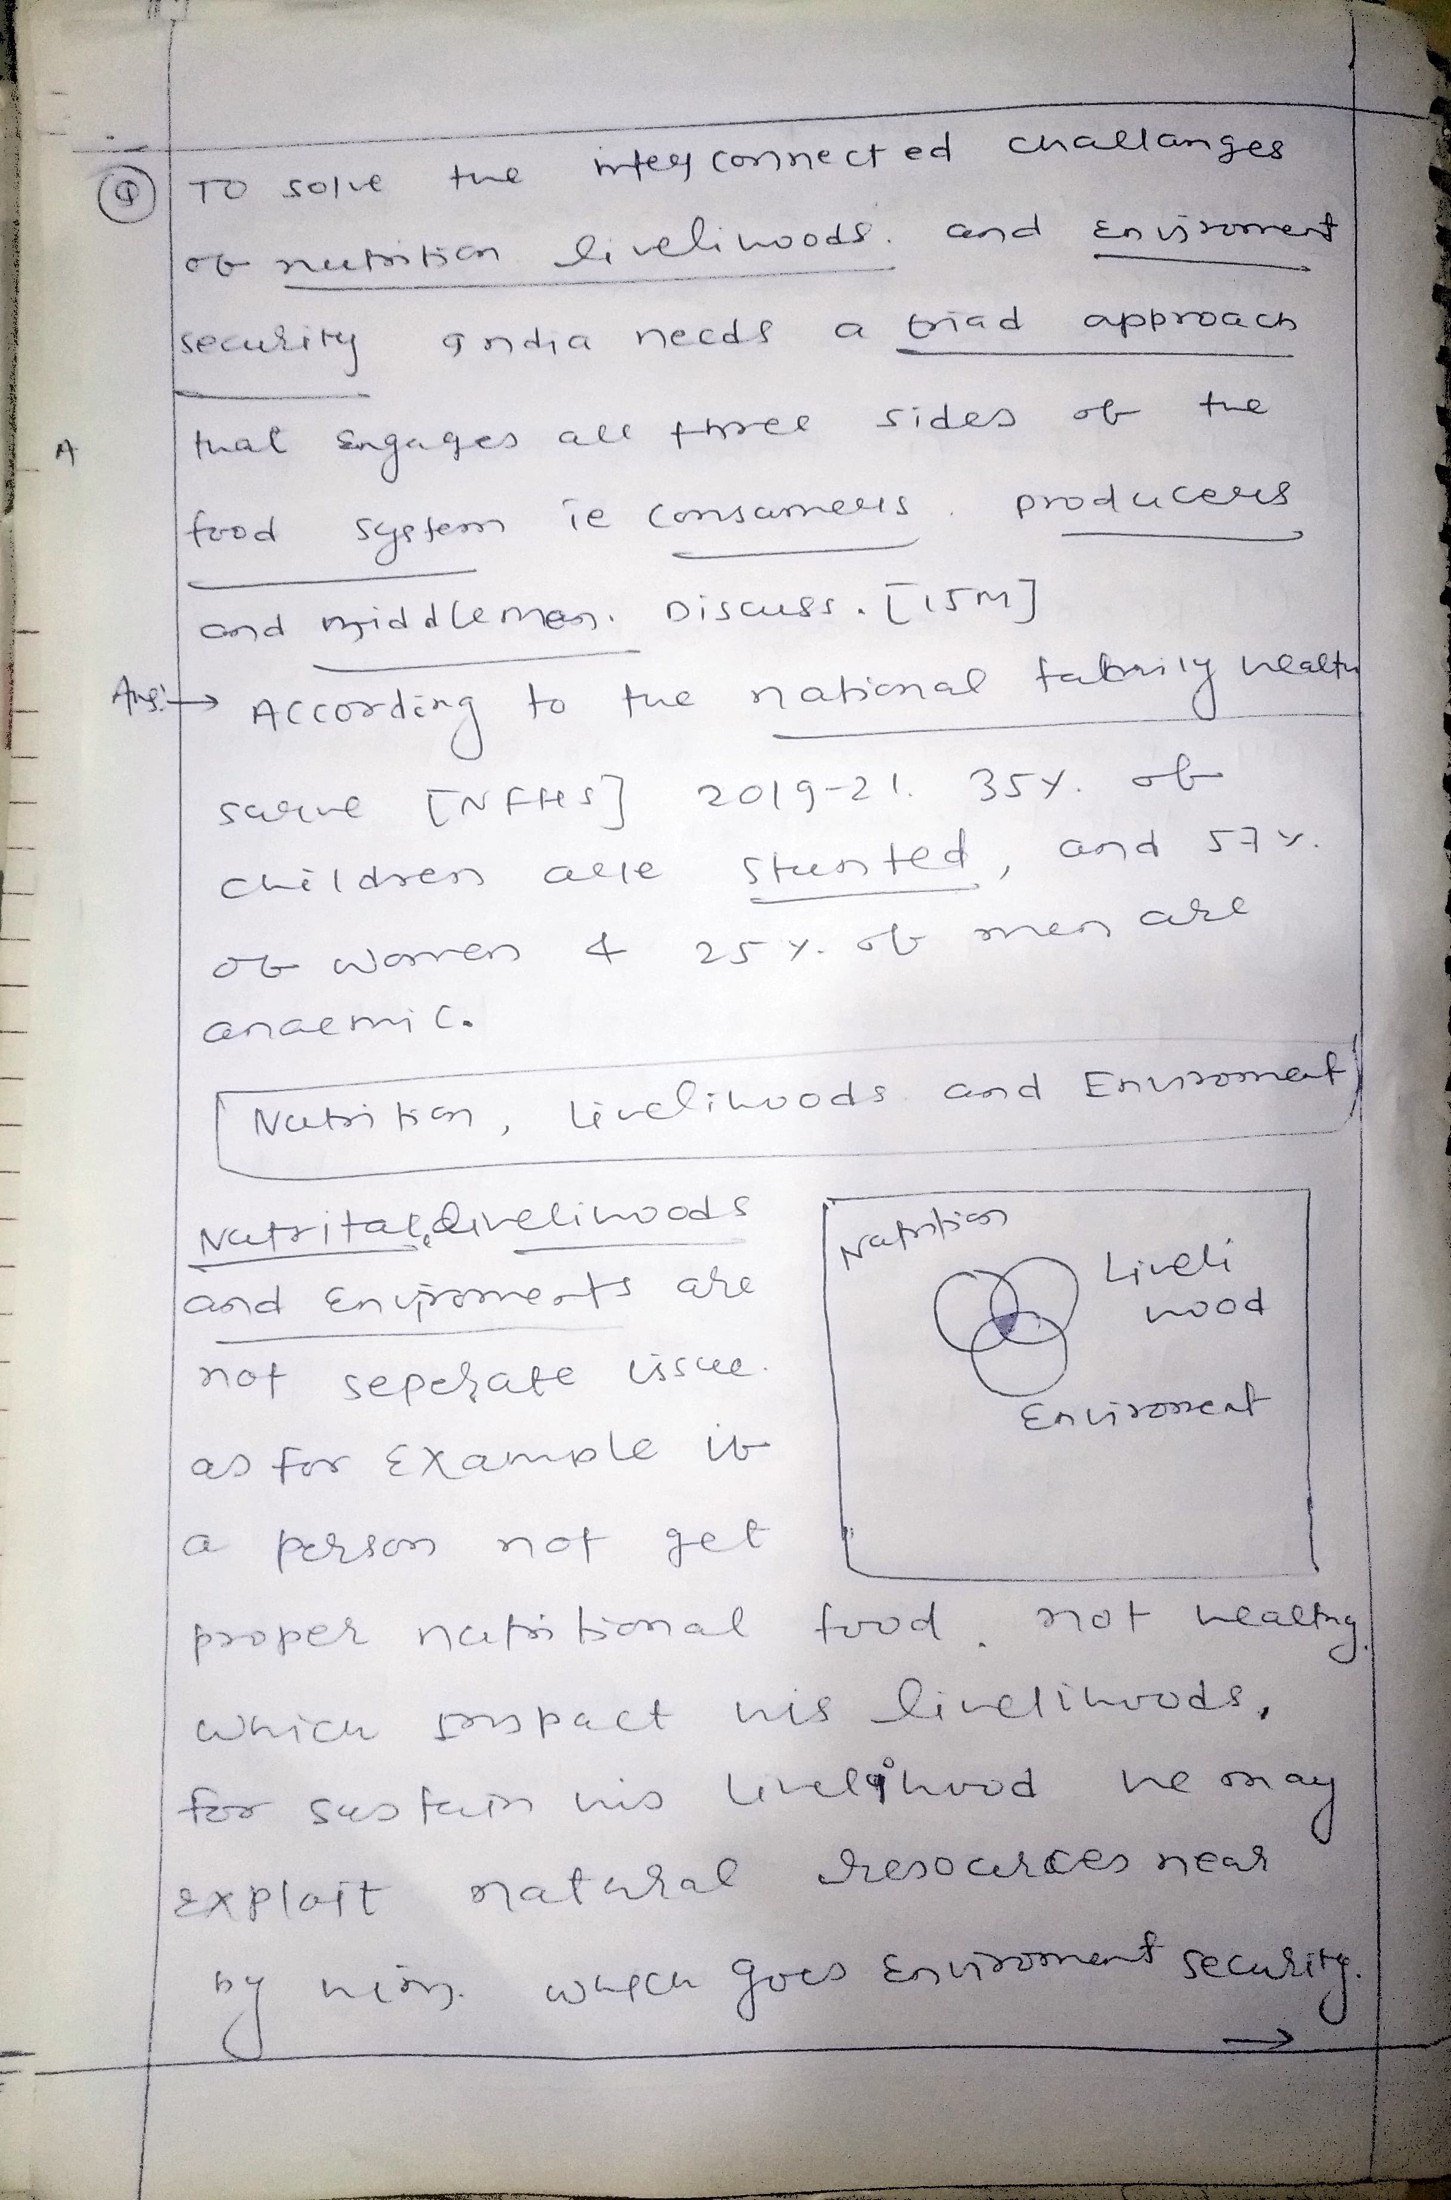 Q To solve the interconnected challanges
of nutrition livelihoods. and Enviroment
security India needs a triad approach
A
that Engages all three sides of the
food system ie consumers. producers
and middlemen. Discuss. [15M]
Ans:→ According to the national family health
[NFHS] 2019-21. 35%. of
children are stunted, and 57%.
of women & 25%. of men are
anaemic.
Nutrition, Livelihoods and Enviroment
Nutrition
Liveli
hood
Enviroment
livelihoods
and Enviroments are
not seperate issue.
as for Example if
a person not get
proper nutritional food. not healthy.
which impact his livelihoods,
for sustain his livelihood he may
exploit natural resources near
by him. which goes Enviroment security.
→